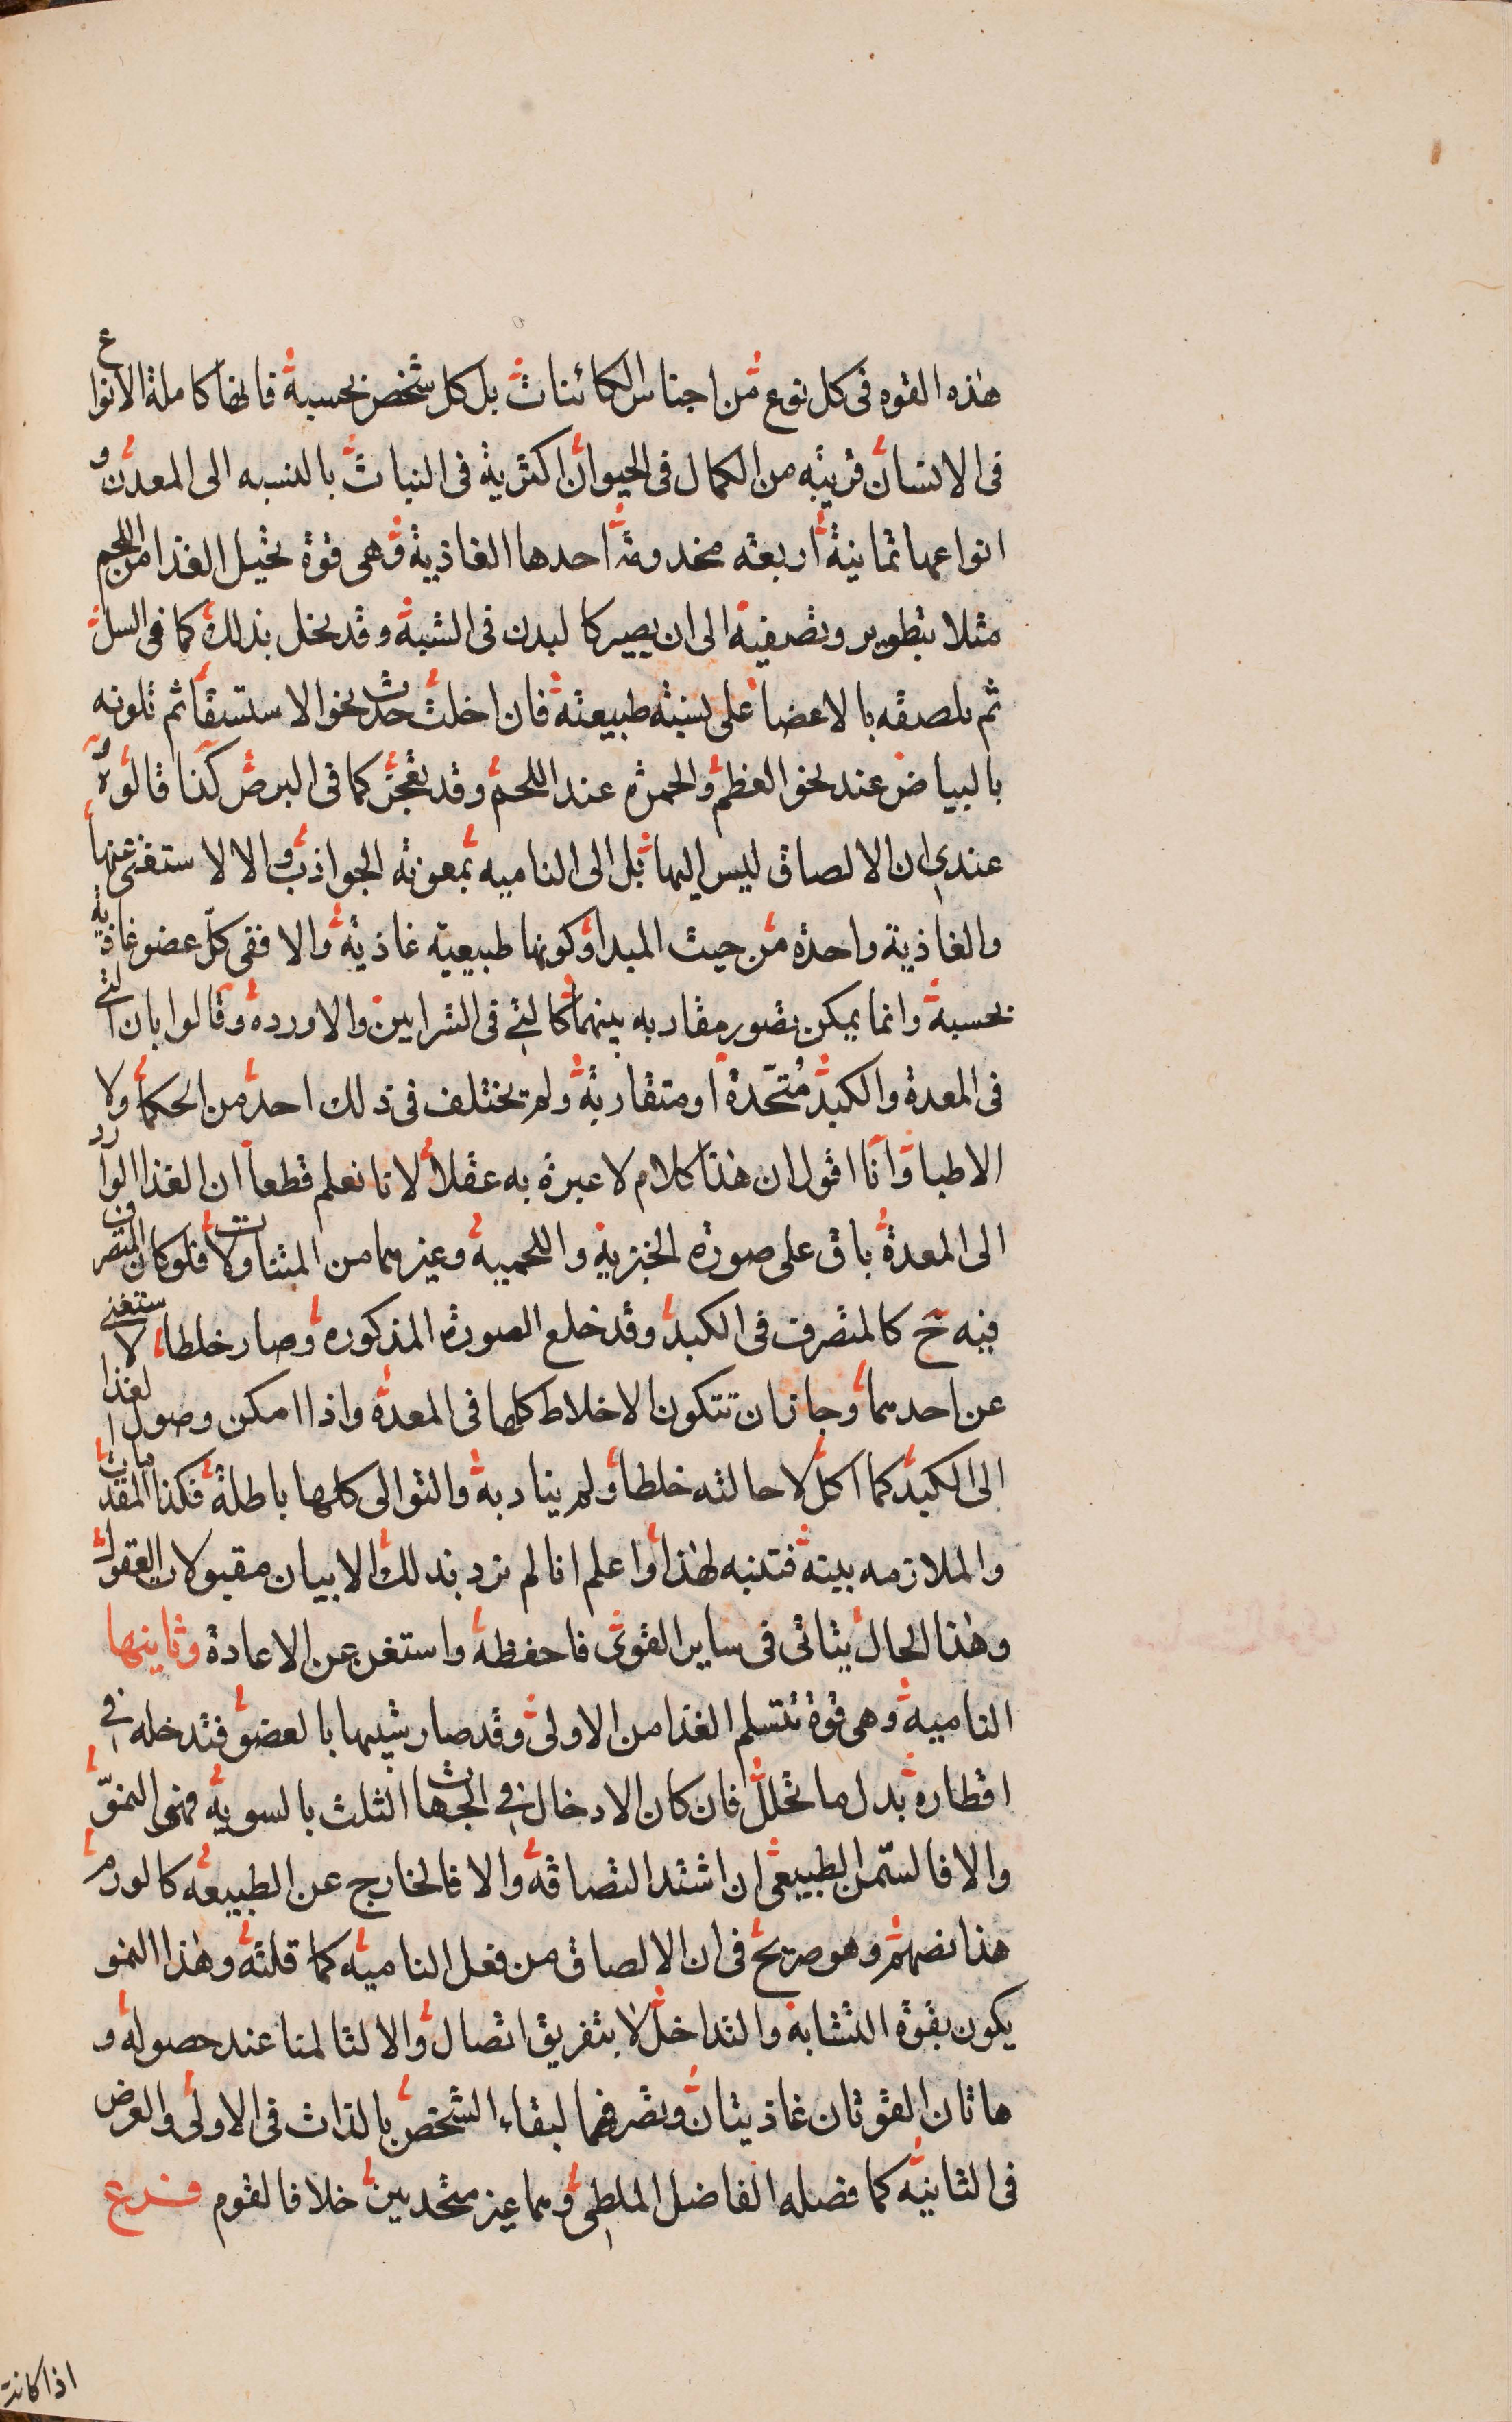 هذه القوه فى كل نوع من اجناس الكائنات بل كل شخص بحسبه فانها كاملة الانواع
فى الانسان قريبه من الكمال فى الحيوان اكثرية فى النبات بالنسبه الى المعدن و
انواعها ثمانية اربعه مخدومة احدها الغاذية وهى قوة تحيل الغذا من اللحم
مثلا بتطوير وتصفية الى ان يصير كالبدن فى الشبه وقد يخل بذلك كما فى السل
ثم تلصقه بالاعضا على نسبته طبيعته فان اخلت حدث نحو الاستسقا ثم تلونه
بالبياض عند نحو العظم والحمره عند اللحم وقد تعجز كما فى البرص كذا قالوه و
عندى ان الالصاق ليس اليها بل الى الناميه بمعونة الجواذب والا لا ستغنى عنها
والغاذية واحدة من حيث المبدا وكونها طبيعية غاذية والا ففى كل عضو غاذية
بحسبه وانما يمكن تصور مقاربه بينهما كالتى فى الشرايين والاورده وقالوا بان التى
فى المعدة والكبد مُتحّدة او متقاربة ولم يختلف فى ذلك احد من الحكما ولا
الاطبا وانا اقول ان هذا كلام لا عبرة به عقلا لانا نعلم قطعا ان الغذا الوارد
الى المعدة باق على صورة الخبزية واللحمية وغيرهما من المتناولات فلو كان المتصرف
فيه ح كالمتصرف فى الكبد وقد خلع الصورة المذكوره وصار خلطا لا ستغنى
عن احدهما وجاز ان تتكون الاخلاط كلها فى المعدة واذا امكن وصول الغذا
الى الكبد كما اكل لا حالته خلطا ولم يناد به والتوالى كلها باطلة فكذا المقدمات
والملازمه بينة فتنبه لهذا واعلم انا لم نرد بذلك الا بيان مقبولات العقول
وهذا الحال يتاتى فى ساير القوى فاحفظه واستغن عن الاعادة وثانيها
النامية وهى قوة تتسلم الغذا من الاولى وقد صار شبيها بالعضو فتدخله فى
اقطاره بدل ما تحلل فان كان الادخال فى الجهات الثلث بالسوية فهو النموّ
والا فالسّمن الطبيعى ان اشتد التصاقه والا فالخارج عن الطبيعه كالورم
هذا نصهم وهو صريح فى ان الالصاق من فعل النامية كما قلته وهذا النمو
يكون بقوة التشابه والتداخل لا بتفريق اتصال والا لتالمنا عند حصوله و
هاتان القوتان غاذيتان وتصرفهما لبقاء الشخص بالذات فى الاولى والعرض
فى الثانية كما فصله الفاضل الملطى وهما غير متحدين خلافا لقوم فــرع
اذا كانت